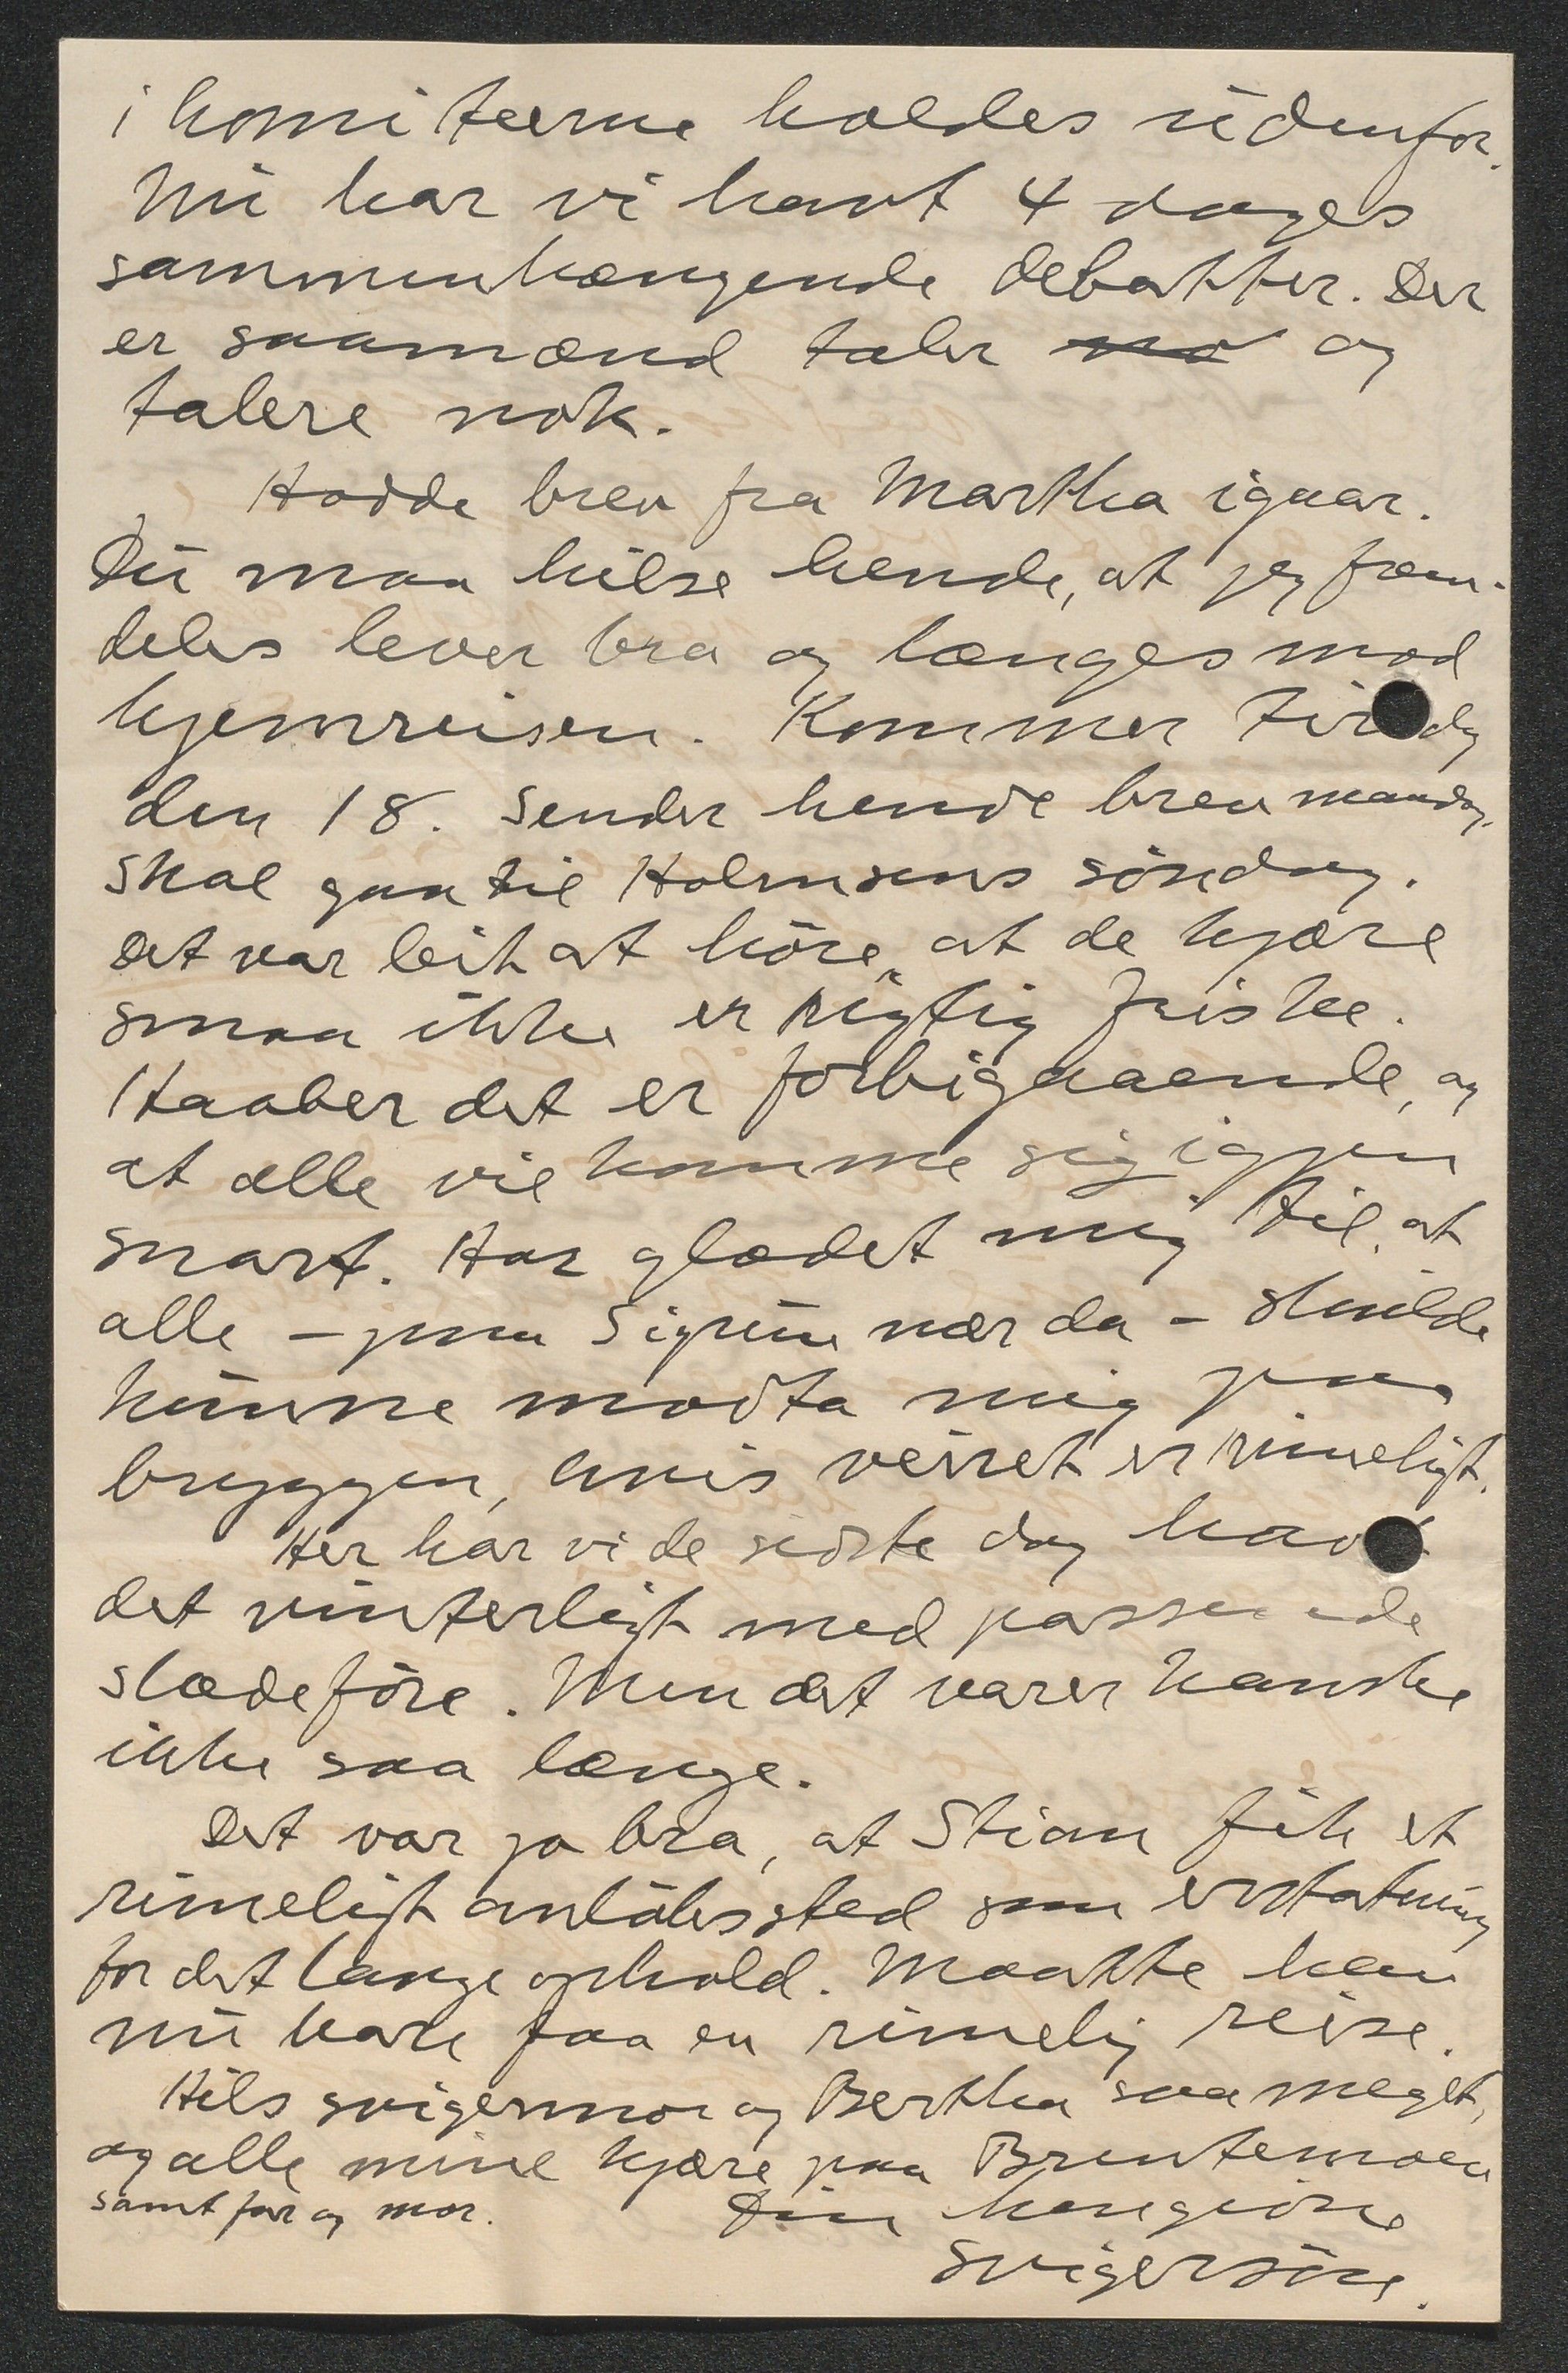 i komiteerne holdes udenfor.
Nu har vi havt 4 dages
sammenhængende debatter. Der
er saamænd taler og
talere nok.
Hadde brev fra Martha igaar.
Du maa hilse hende, at jeg frem-
deles lever bra og længes mod
hjemreisen. Kommer tirsdag
den 18. Sender hende brev mandag.
Skal gaa til Holmsens søndag.
Det var leit at høre, at de kjære
smaa ikke er rigtig friske.
Haaber det er forbigaaende, og
at alle vil komme sig igjen
snart. Har glædet mig til, at
alle – paa Sigrun nær da – skulde
kunne modta mig paa
bryggen, hvis veiret er rimeligt.
Her har vi de sidste dag havt
det vinterligt med passende
slædeføre. Men det varer kanske
ikke saa længe.
Det var jo bra, at Stian fik et
rimeligt anløbssted som erstatning
for det lange ophold. Maatte han
nu bare faa en rimelig reise.
Hils svigermor og Bertha saa meget,
og alle mine kjære paa Bruntemoen
samt far og mor. Din hengivne
svigersøn.